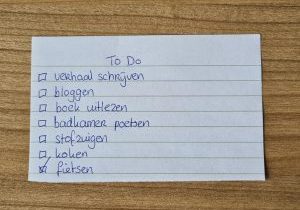 To Do
verhaal schrijven
bloggen
boek uitlezen
badkamer poetsen
stofzuigen
koken
fietsen